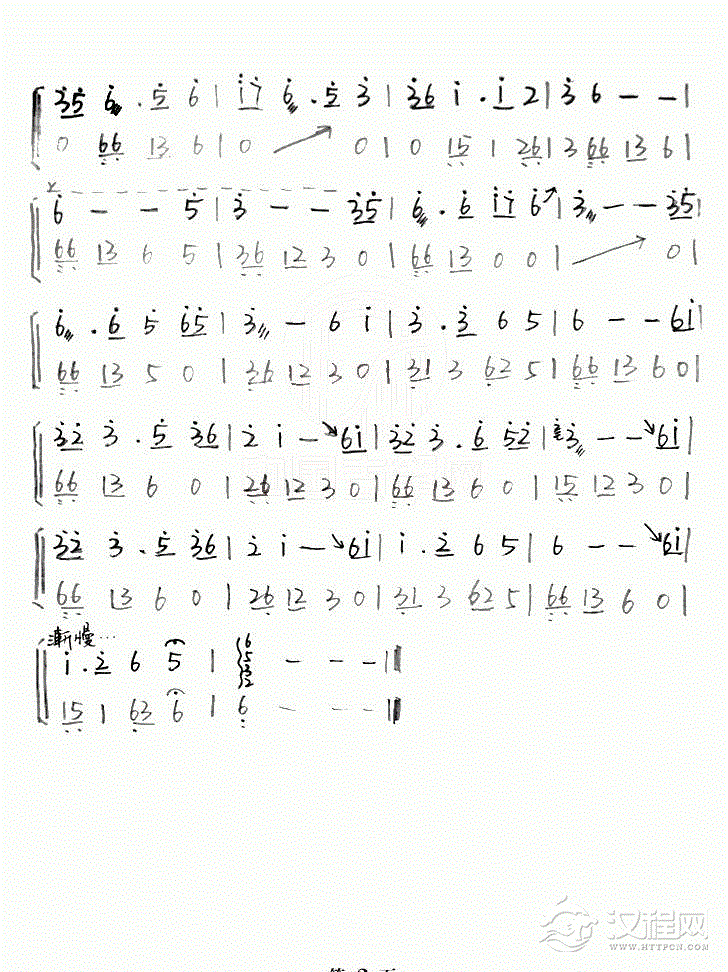 35 6 . 5 6 | i7 6 . 5 3 | 36 i . i 2 | 3 6 - - |
0 66 13 6 | 0 0 | 0 15 1 26 | 3 66 13 6 |
6 - - 5 | 3 - - 35 | 6 . 6 i7 6 | 3 - - 35 |
66 13 6 5 | 36 12 3 0 | 66 13 0 0 | 0 |
6 . 6 5 65 | 3 - 6 i | 3 . 3 6 5 | 6 - - 6i |
66 13 5 0 | 36 12 3 0 | 31 3 62 5 | 66 13 6 0 |
32 3 . 5 36 | 2 i - 6i | 32 3 . 6 52 | 3 - - 6i |
66 13 6 0 | 26 12 3 0 | 66 13 6 0 | 15 12 3 0 |
32 3 . 5 36 | 2 i - 6i | i . 2 6 5 | 6 - - 6i |
66 13 6 0 | 26 12 3 0 | 31 3 62 5 | 66 13 6 0 |
漸慢...
i . 2 6 5 | 6532 - - - ||
15 1 63 6 | 6 - - - ||
汉程网
HTTPCN.COM